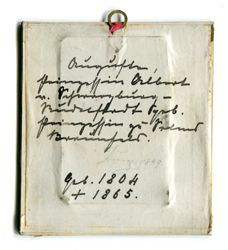 Auguste,
Prinzessin Albert
v. Schwarzburg-
Rudolstadt geb.
Prinzessin zu Solms
Braunfels.
Geb. 1804
+ 1865.